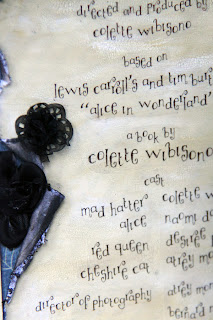 directed and produced by
colette wibisono
based on
lewis carroll's and tim
"alice in wonderland"
a book by
colette wibisono
cast
mad hatter colette
alice naomi
red queen desiree
cheshire cat atrey
director of photography atrey
bernard